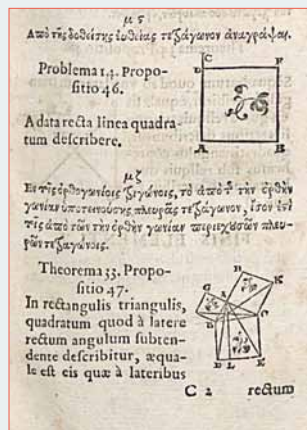 μς
Ἀπὸ τῆς δοθείσης εὐθείας τετράγωνον ἀναγράψαι.
Problema 14. Propo-
sitio 46.
A data recta linea quadra-
tum describere.
C
D F
A B
μζ
Ἐν τοῖς ὀρθογωνίοις τριγώνοις, τὸ ἀπὸ τῆς τὴν ὀρθὴν
γωνίαν ὑποτεινούσης πλευρᾶς τετράγωνον, ἴσον ἐστὶ
τοῖς ἀπὸ τῶν τὴν ὀρθὴν γωνίαν περιεχουσῶν πλευ-
ρῶν τετραγώνοις.
Theorema 33. Propo-
sitio 47.
In rectangulis triangulis,
quadratum quod à latere
rectum angulum subten-
dente describitur, æqua-
le est eis quæ à lateribus
H
K
G
C
D L E
C 2 rectum